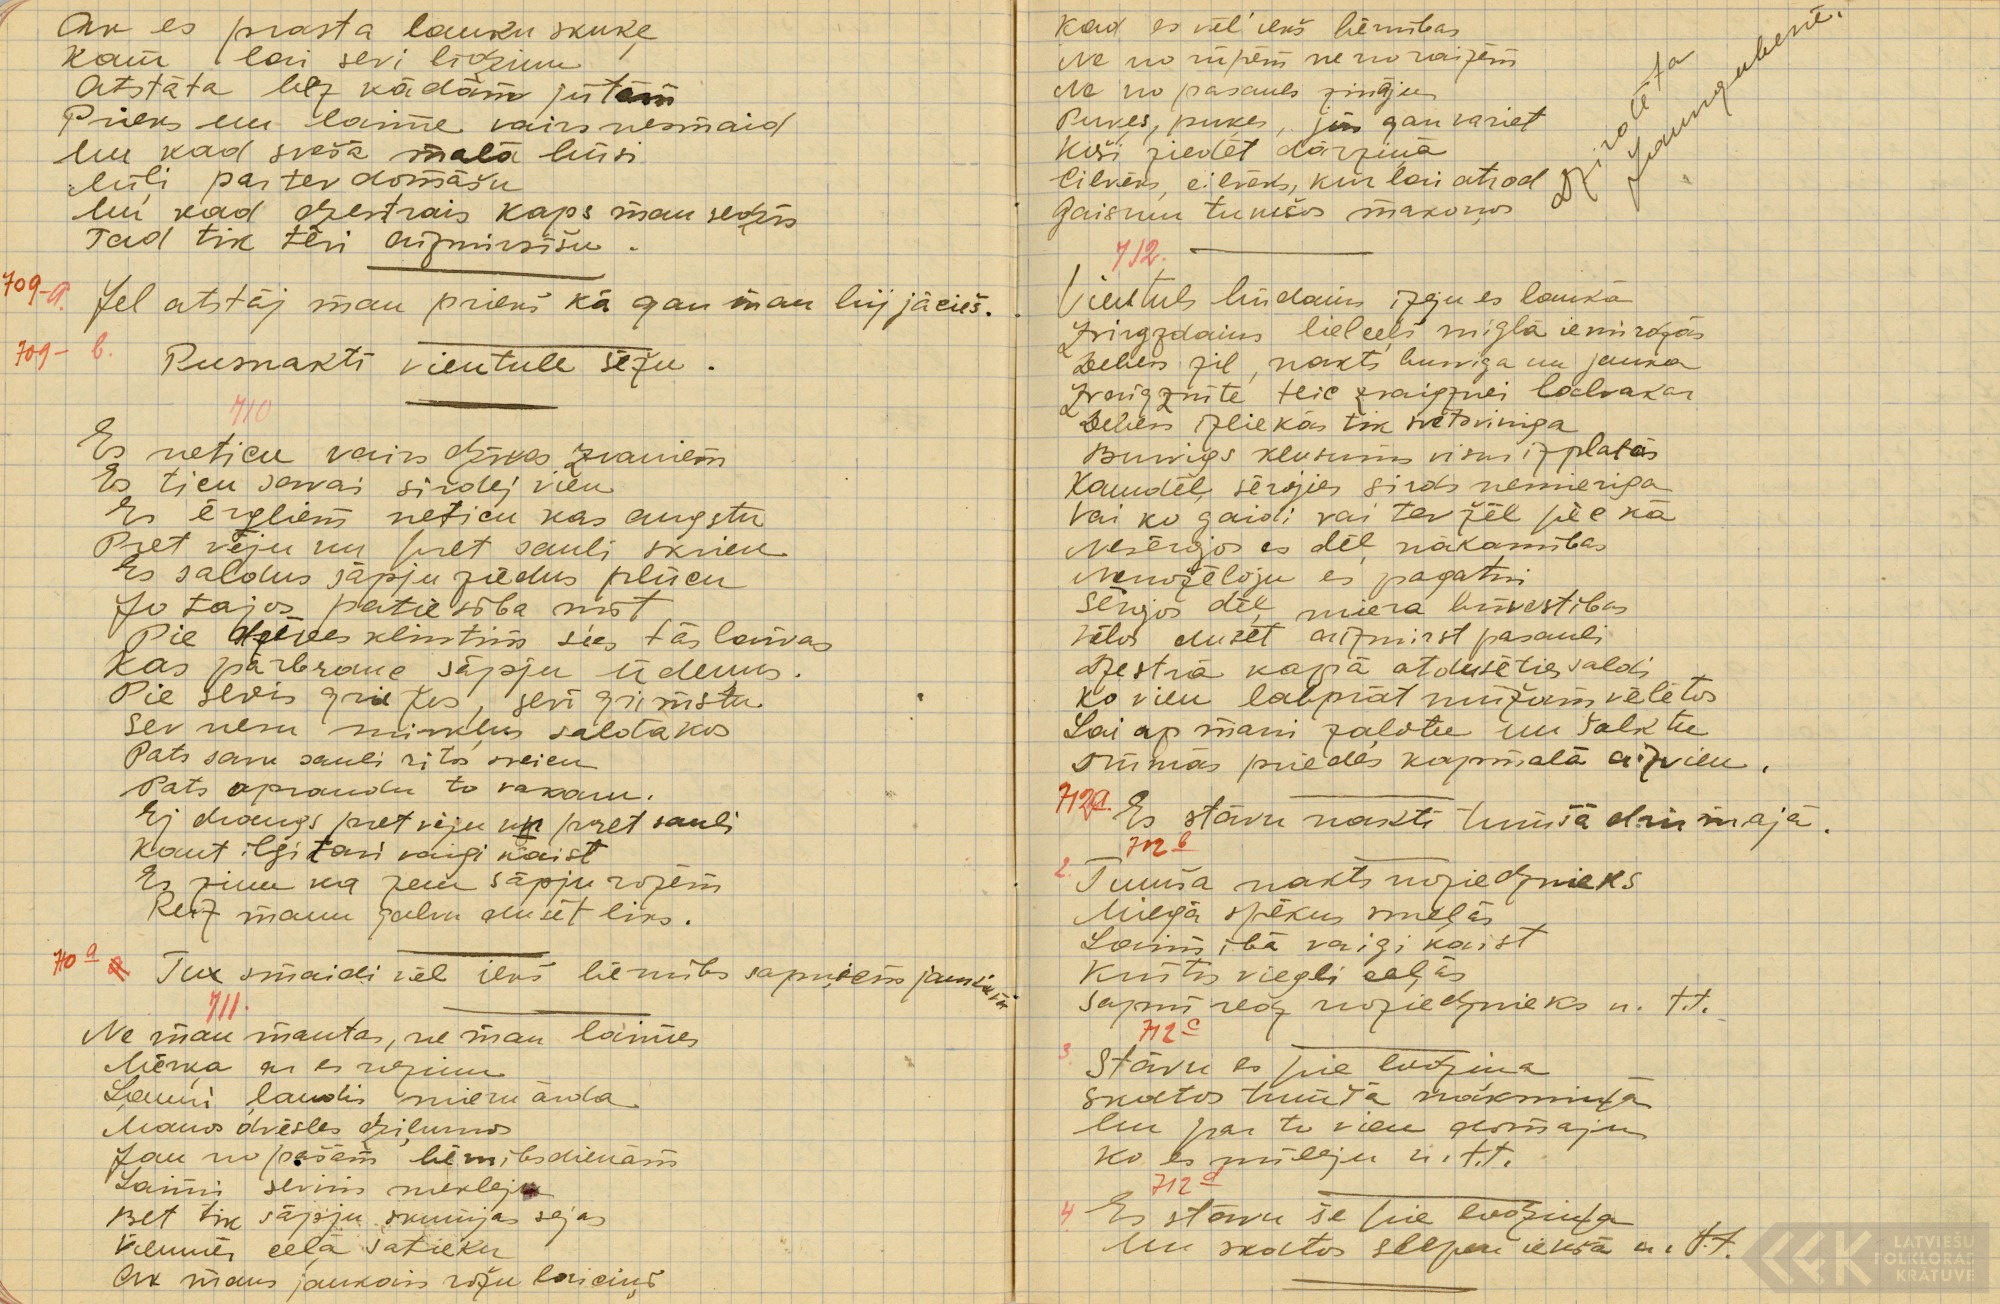 Ak es prasta lauku skuķe
Kam lai sevi līdzinu
Atstāta bez kādām jūtām
Prieks un laime vairs nesmaid
Un kad svešā malā būsi
Mīļi par tev domāšu
Un kad dzestrais kaps man sedzīs
Tad tik tevi aizmirsīšu.
709-a. Jel atstāj man prieks kā gan man būj jācieš.
709- b. Pusnaktī vientule sēžu.
710
Es neticu vairs dzīves zvaniem
Es ticu savai sirdej vien
Es ērgļiem neticu kas augstu
Pret vēju un pret sauli skrien
Es saldus sāpju ziedus plūcu
Jo tajos patiesība mīt
Pie dzīves klintīm sies tās laivas
Kas pārbrauc sāpju ūdeņus.
Pie sevis griežos, sevī grimstu
Sev nesu mirkļus saldākos
Pats savu sauli rītos sveicu
Pats apraudu to vakaru.
Ej draugs pret vēju un pret sauli
Kaut ilgi tavi vaigi kaist
Es zinu ka zem sāpju rozēm
Reiz manu galvu dusēt liks.
710 a Tux smaidi vēl iekš bērnības sapņiem jaukiem
711.
Ne man mantas, ne man laimes
Mērķa ar es nezinu
Ļauni ļaudis mieru ārda
Manos dvēsles dziļumos
Jau no pašām bērnības dienām
Laimi sevim meklēju
Bet tik sāpju skumjas sejas
Vienmēr ceļā satieku
Ak mans jaukais rožu laiciņš
Kad es vēl iekš bērnības
Ne no rūpēm ne no raizēm
Ne no pasauls zināju
Puķes, puķes, jūs gan variet
Koši ziedēt dārziņā
Cilvēks, cilvēks, kur lai atrod
Gaismu tumšos mākoņos
Dzirdēta
Jaungulbenē.
712.
Vientuls būdams izeju es laukā
Zvirgzdains lielceļš miglā iemirdzās
Debess zil, nakts burvīga un jauka
Zvaigznīte teic zvaigznei labvakar
Debess izliekās tik svētsvinīga
Burvīgs klusums visur izplatās
Kamdēļ sērojies sirds nemierīga
Vai ko gaidi vai tev žēl pēc kā
Nesērojos es dēļ nākamības
Nenožēloju es pagātni
Sērojos dēļ miera būvestības
Vēlos dusēt aizmirst pasauli
Dzestrā kapā atdusēties saldi
Ko vien labprāt mūžam vēlētos
Lai ap mani zaļotu un šalktu
Sūrmās priedes kapmalā aizvien.
712a. Es stāvu naktī tumšā drūmajā.
712 b
2. Tumša nakts noziedznieks
Miegā spēkus smeļās
Laimībā vaigi kaist
Krūtis viegli ceļās
Sapnī redz noziedznieks u. t.t.
712 c
3. Stāvu es pie lodziņa
Skatos tumšā nāksniņā
Un par to vien domāju
Ko es mīlēju u. t.t.
712 d
4 Es stāvu še pie lodziņa
Un skatos slepeni iekšā u. t.t.
LATVIEŠU
FOLKLORAS
KRĀTUVE